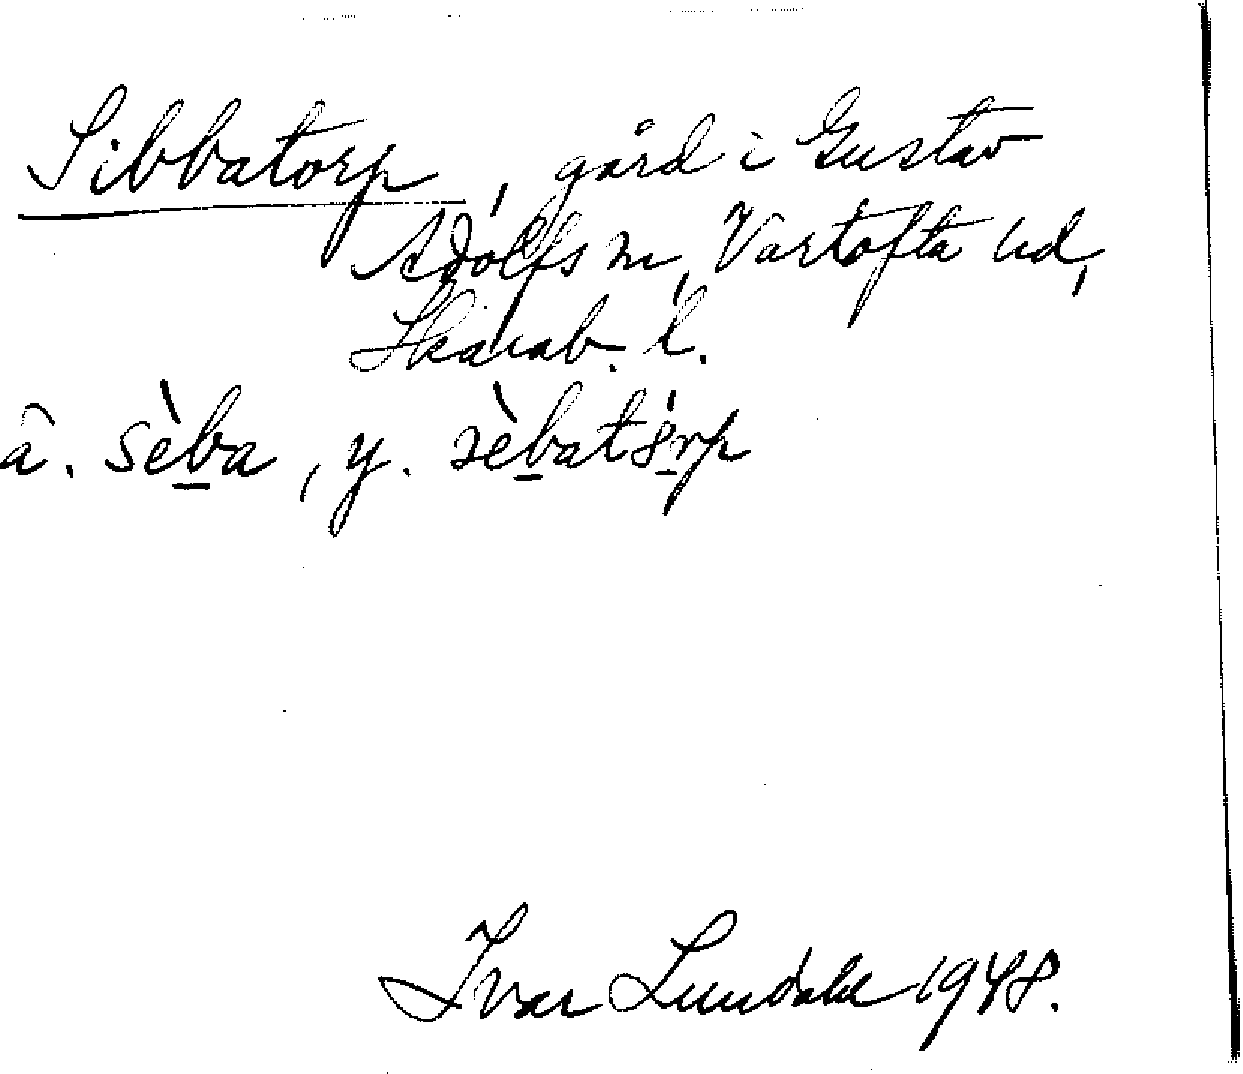 Sibbatorp, gård i Gustav
Adolfs sn, Vartofta hd,
Skarab. l.
â. sèba, y. sèbatórp
Ivar Lundahl 1948.